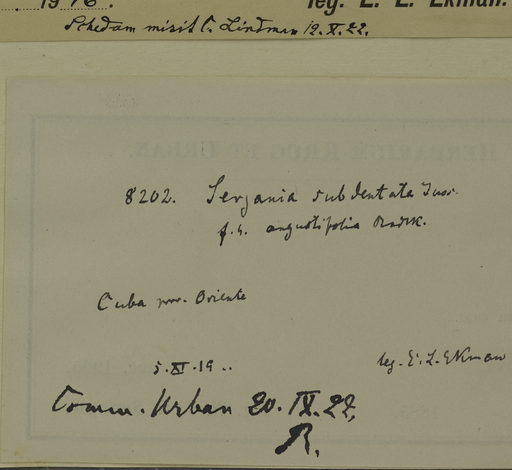 19 16. leg. E. L. Ekman.
Schedam misit C. Lindman 12.X.22.
HERBARIUM KRUG ET URBAN.
8202. Serjania subdentata Juss.
f. 4. angustifolia Radlk.
Cuba prov. Oriente
5.XI.19..
leg. E. L. Ekman
Comm. Urban 20.IX.22,
R.